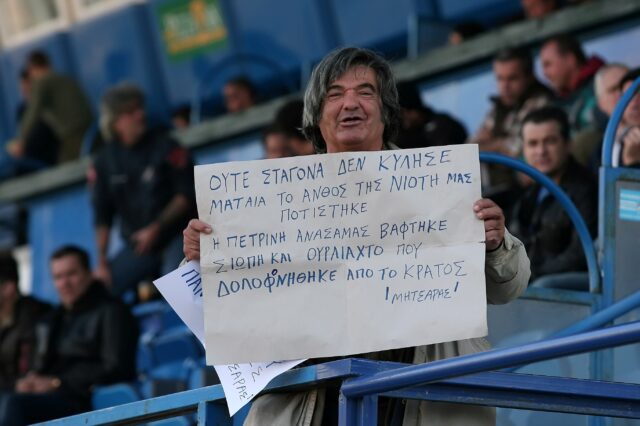 ΟΥΤΕ ΣΤΑΓΟΝΑ ΔΕΝ ΚΥΛΗΣΕ
ΜΑΤΑΙΑ ΤΟ ΑΝΘΟΣ ΤΗΣ ΝΙΟΤΗ ΜΑΣ
ΠΟΤΙΣΤΗΚΕ
Η ΠΕΤΡΙΝΗ ΑΝΑΣΑΜΑΣ ΒΑΦΤΗΚΕ
ΣΙΩΠΗ ΚΑΙ ΟΥΡΛΙΑΧΤΟ ΠΟΥ
ΔΟΛΟΦΟΝΗΘΗΚΕ ΑΠΟ ΤΟ ΚΡΑΤΟΣ
'ΜΗΤΣΑΡΑΣ'